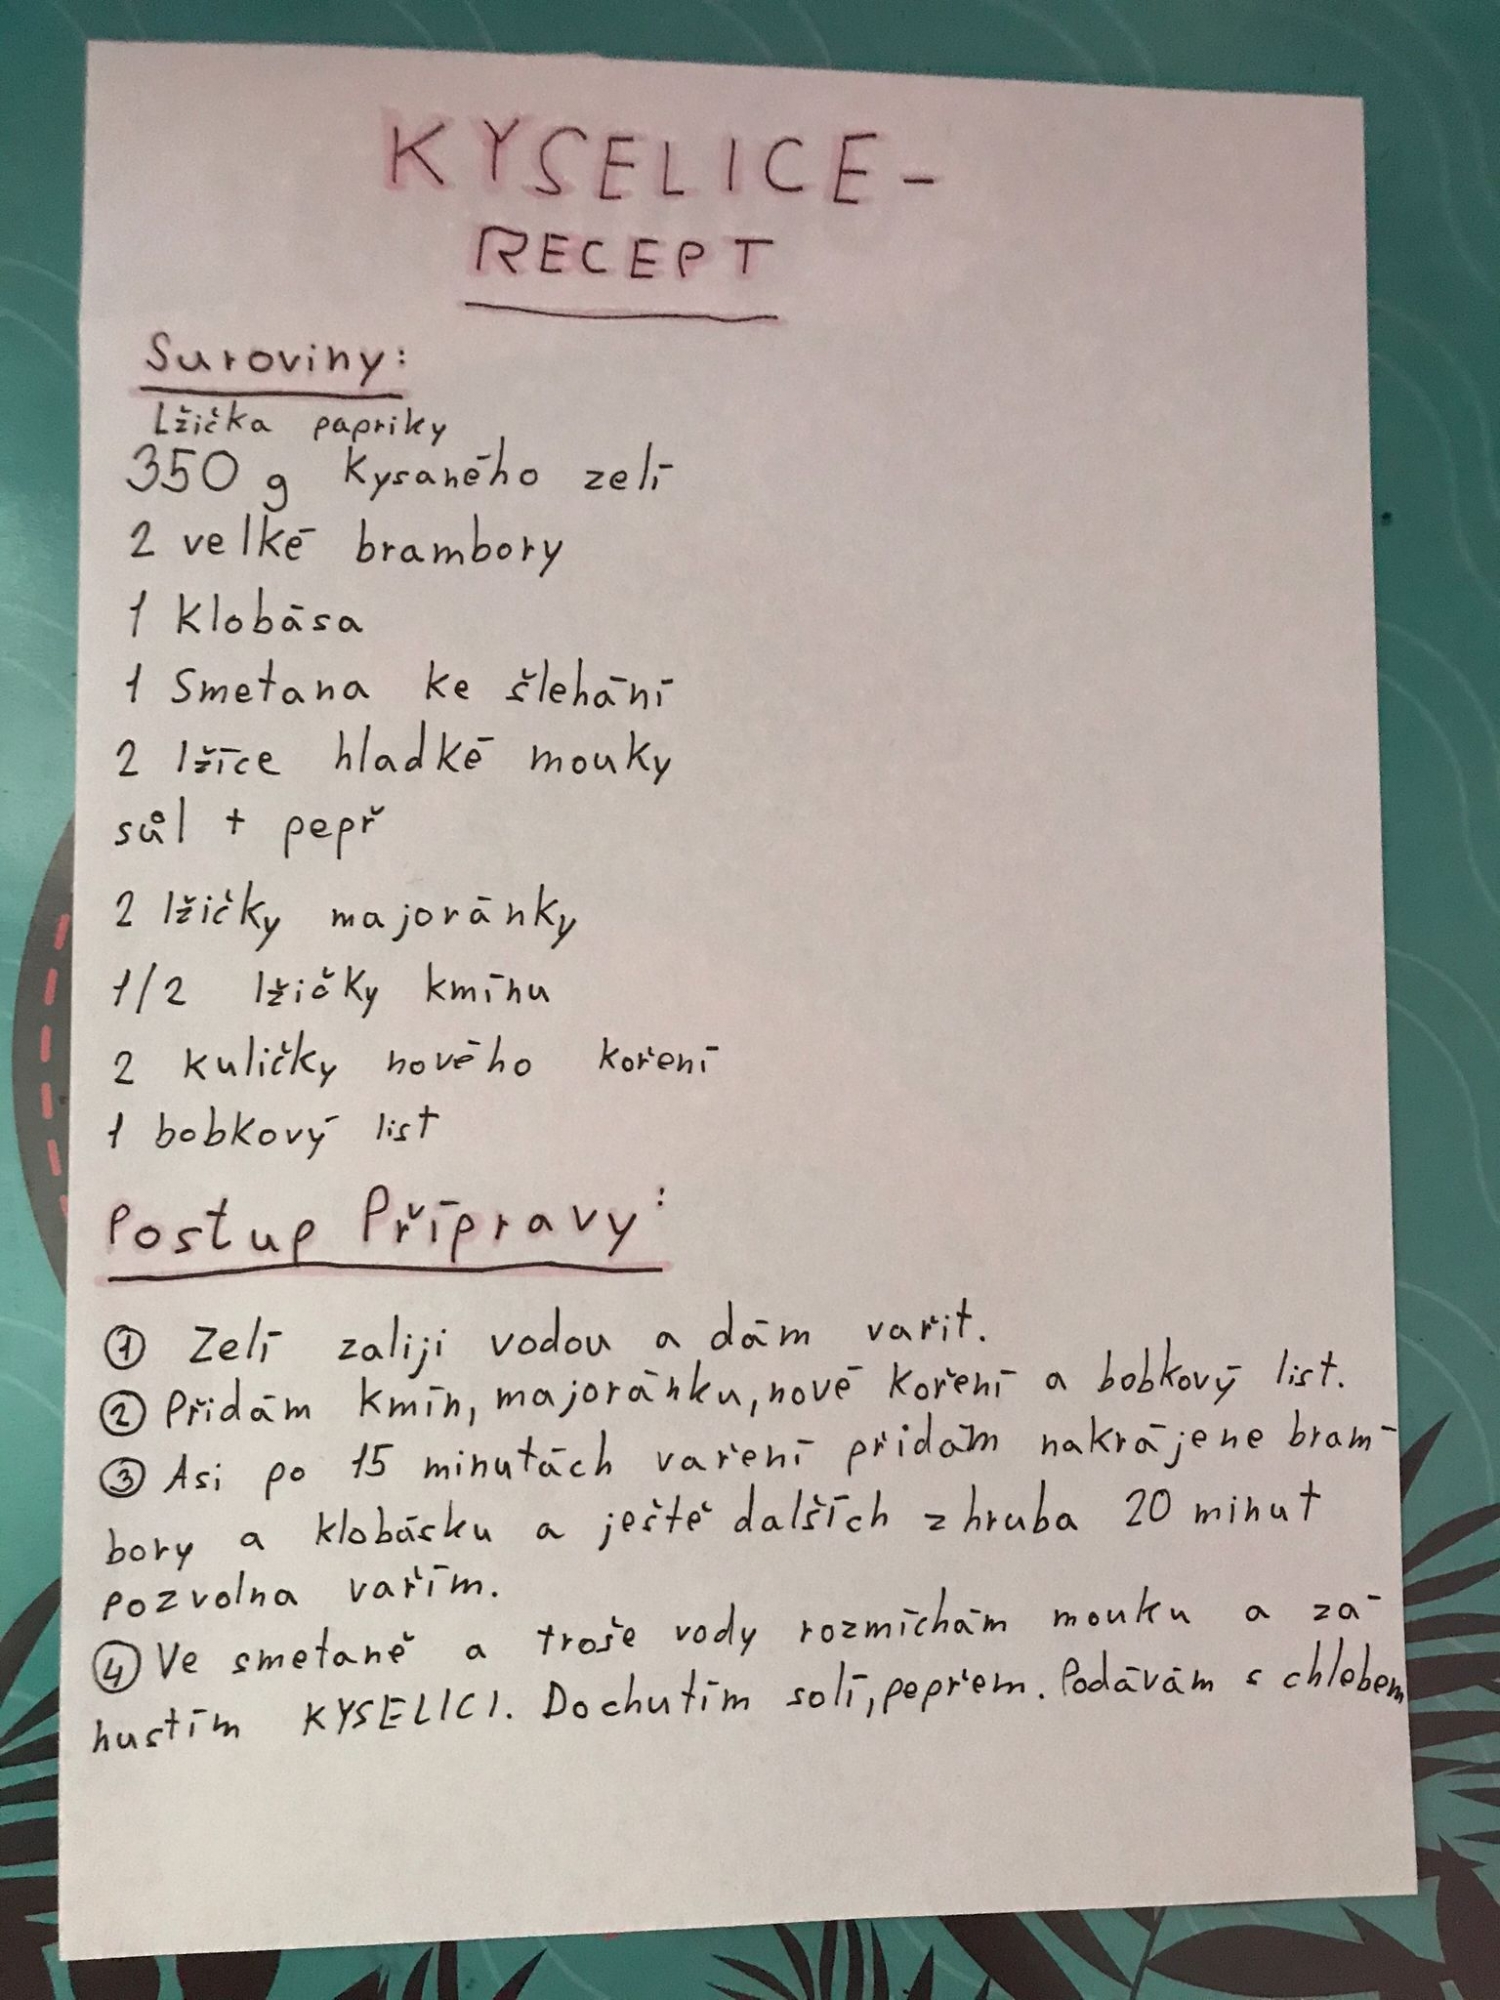 KYSELICE-
RECEPT
Suroviny:
Lžička papriky
350 g kysaného zelí
2 velké brambory
1 klobása
1 Smetana ke šlehání
2 lžíce hladké mouky
sůl + pepř
2 lžičky majoránky
1/2 lžičky kmínu
2 kuličky nového koření
1 bobkový list
Postup Přípravy:
① Zelí zaliji vodou a dám vařit.
② Přidám kmín, majoránku, nové koření a bobkový list.
③ Asi po 15 minutách vaření přidám nakrájene bram-
bory a klobásku a ještě dalších zhruba 20 minut
pozvolna vařím.
④ Ve smetaně a troše vody rozmíchám mouku a za-
hustím KYSELICI. Dochutím solí, pepřem. Podávám s chlebem